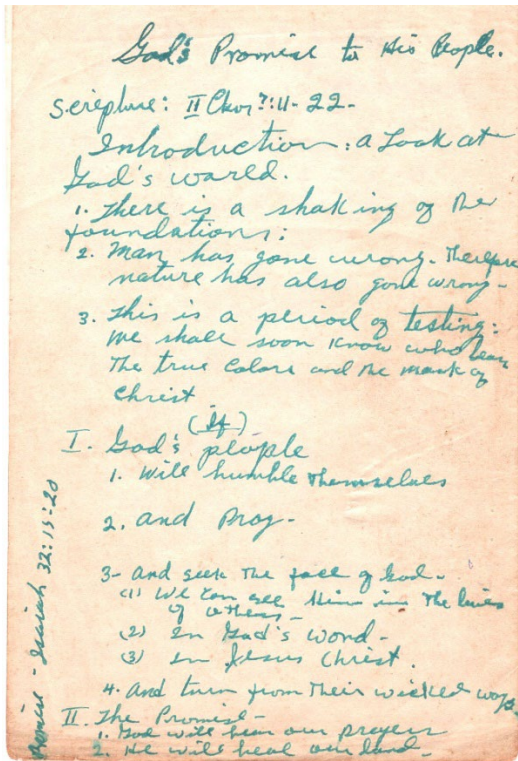 God's Promise to His People.
Scripture: II Chor 7:11-22-
Introduction: a Look at
God's world.
1. There is a shaking of the
foundations:
2. Man has gone wrong. Therefore
nature has also gone wrong-
3. This is a period of testing:
We shall soon know who bear
The true Colors and the mark of
Christ
(If)
I. God's people
1. Will humble themselves
2. and Pray-
3- And seek The face of God-
(1) We can see Him in The lives
of others-
(2) In God's word-
(3) In Jesus Christ.
4. And turn from Their wicked ways-
II. The Promise-
1. God will hear our prayers
2. He will heal our land-
Isaiah 32:15-20